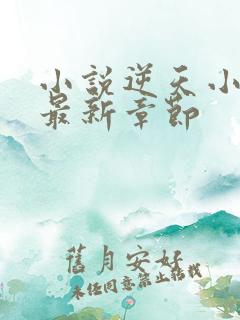 小說逆天小
最新章節
舊月安好
未经同意禁止转载